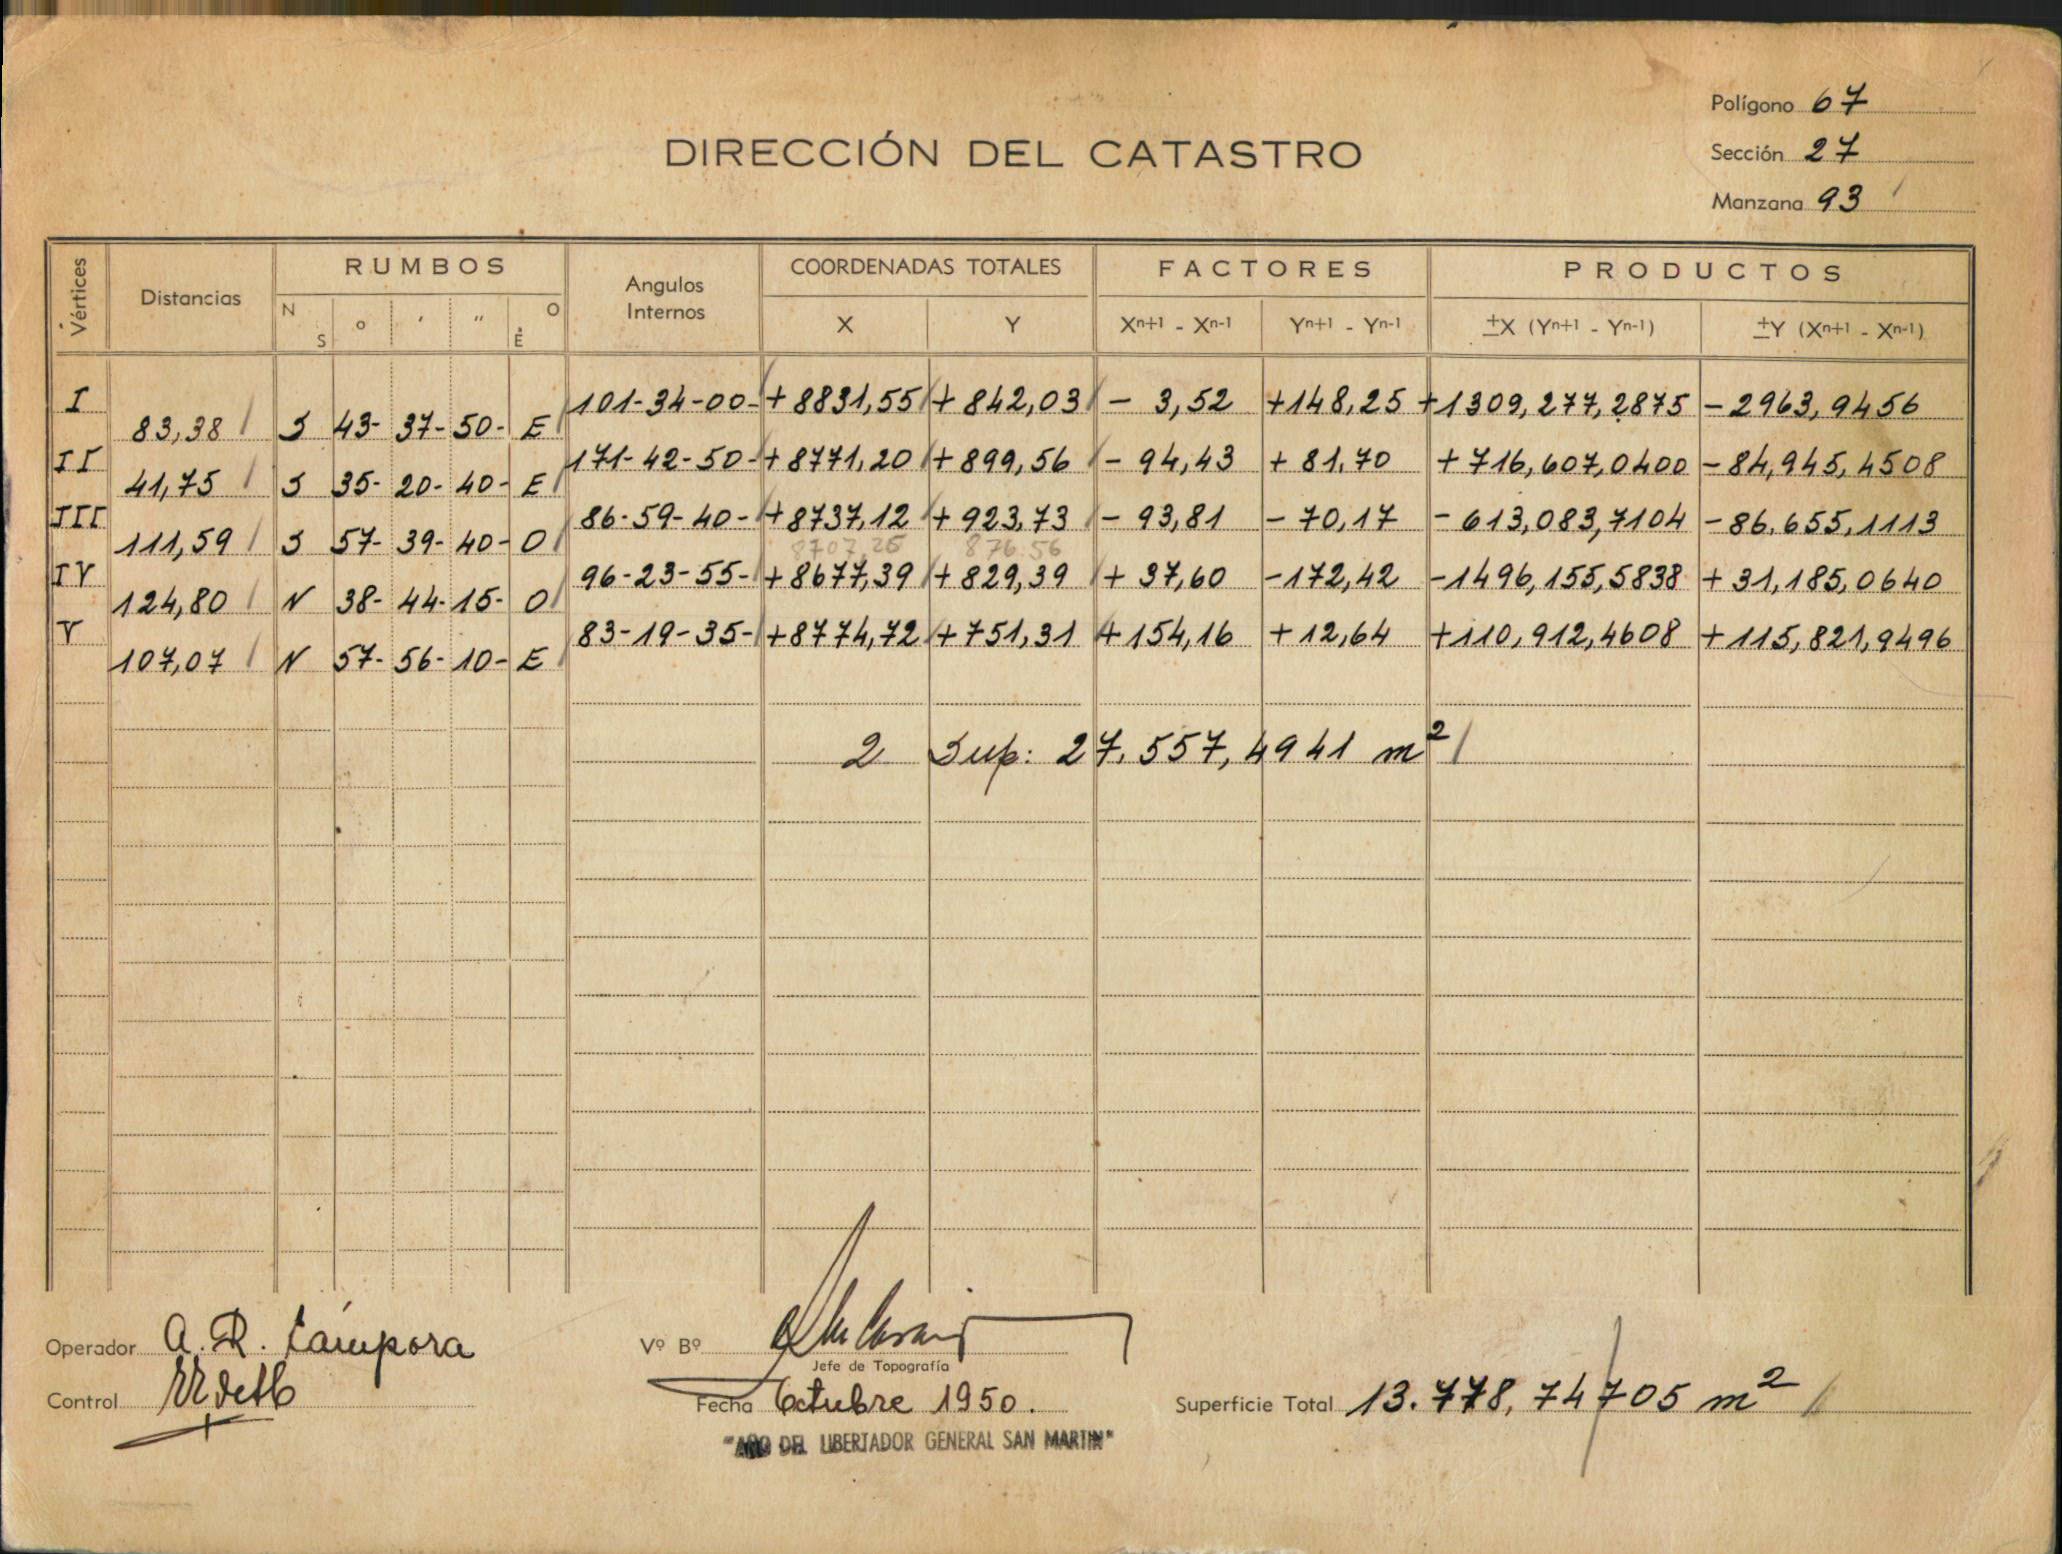 Polígono 67
DIRECCIÓN DEL CATASTRO
Sección 27
Manzana 93
Vértices Distancias RUMBOS Angulos Internos COORDENADAS TOTALES FACTORES PRODUCTOS
N S o ' " O E X Y Xn+1 - Xn-1 Yn+1 - Yn-1 ±X (Yn+1 - Yn-1) ±Y (Xn+1 - Xn-1)
I 101-34-00- +8831,55 +842,03 - 3,52 +148,25 +1309,277,2875 -2963,9456
83,38 S 43- 37- 50- E
II 171-42-50- +8771,20 +899,56 - 94,43 + 81,70 +716,607,0400 -84,945,4508
41,75 S 35- 20- 40- E
III 86-59-40- +8737,12 +923,73 - 93,81 - 70,17 - 613,083,7104 -86.655,1113
111,59 S 57- 39- 40- O
8707,25 876.56
IV 96-23-55- +8677,39 +829,39 + 37,60 -172,42 -1496,155,5838 +31,185,0640
124,80 N 38- 44- 15- O
V 83-19-35- +8774,72 +751,31 +154,16 +12,64 +110,912,4608 +115,821,9496
107,07 N 57- 56- 10- E
2 Sup: 27.557,4941 m²
Operador A. R. Cámpora
Vº Bº
Jefe de Topografía
Control
Fecha Octubre 1950.
Superficie Total 13.778,74705 m²
"AÑO DEL LIBERTADOR GENERAL SAN MARTIN"